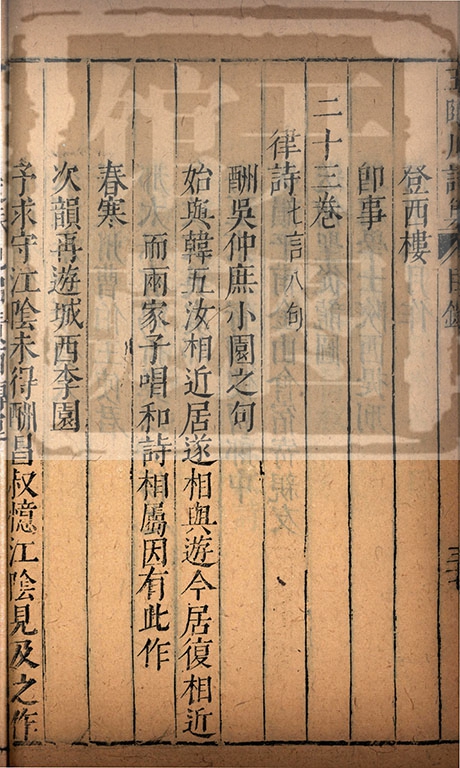 登西樓
卽事
二十三卷
律詩七言八句
酬吳仲庶小園之句
始與韓玉汝相近居遂相與遊今居復相近
而兩家子唱和詩相屬因有此作
春寒
次韻再遊城西李園
予求守江陰未得酬昌叔憶江陰見及之作